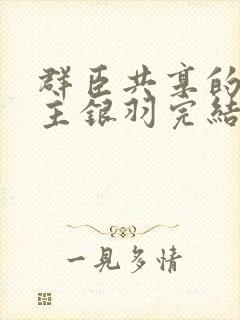 群臣共享的
主銀羽完結
一見多情